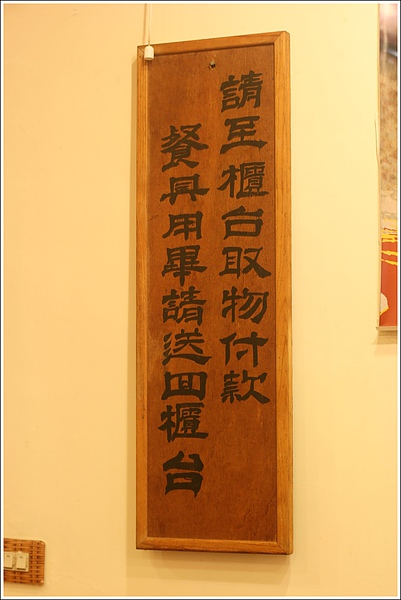 請至櫃台取物付款
餐具用畢請送回櫃台